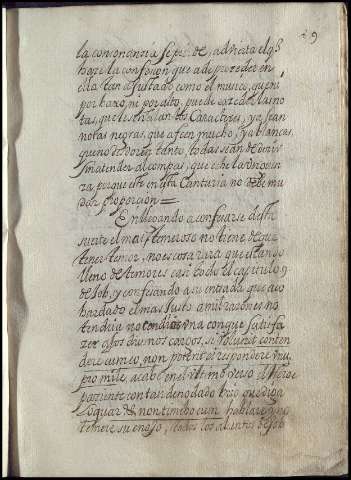 29
la consonancia siempre. se advierta el q̃
haze la confesion que a de proceder en
ella tan ajustado como el musico, que ni
por baxo, ni por alto, puede exceder las no
tas, que le señalan los Caracteres, ya sean
notas negras, que afeen mucho, ya blancas,
que no desdoren tanto, todas se an de dezir
sin atender al compas, que eche la verguen
za porque este en esta Canturia no debe mu
dar proporcion =
En llegando a confesarse desta
suerte el mas temeroso no tiene de que
tener temor, no es cosa rara que estando
lleno de temores casi todo el capitulo 9
de Job, y confesando a su entrada que aco
bardado el mas Justo a mil razones no
tendria no tendria una conque satisfa
zer a los divinos cargos, si voluerit conten
dere cum eo, non poterit ei respondere unu
pro mille, acabe en el ultimo verso el Heroe
paciente con tan denodado brio que diga
loquar & non timebo eum, hablare y no
temere su enojo, todos los alientos de Job